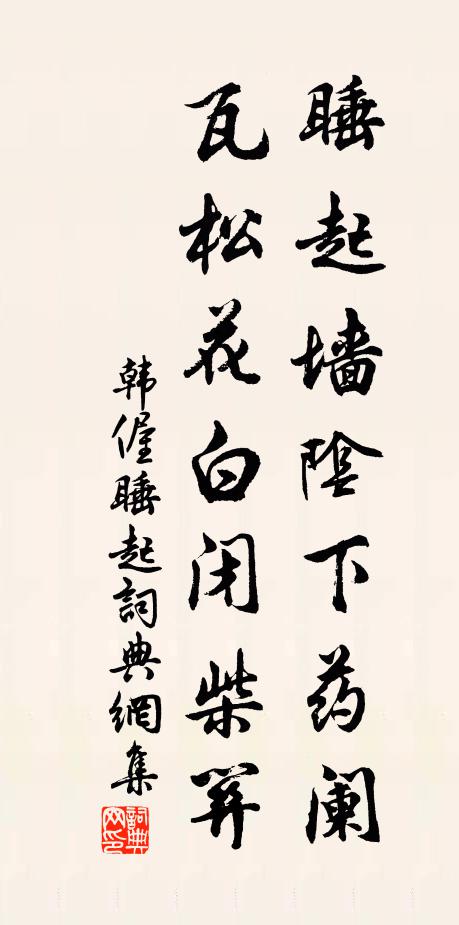 睡起墙阴下药阑
瓦松花白闭柴关
韩偓睡起詞典網集
詞典网印